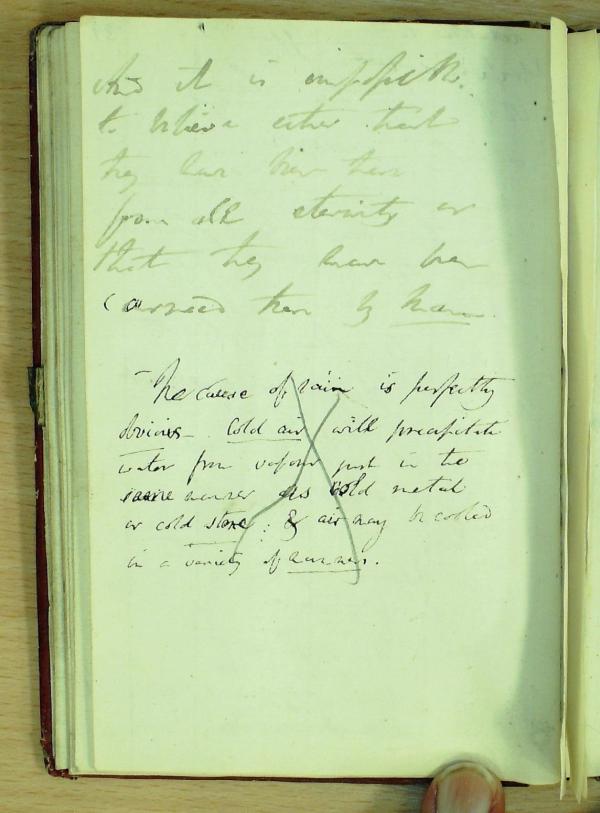 And it is impossible
to believe either that
they have been there
from all eternity or
that they have been
carried there by
The cause of rain is perfectly
obvious - Cold air will precipitate
water from vapour just in the
same manner as cold metal
or cold stone; & air may be cooled
in a variety of manners.